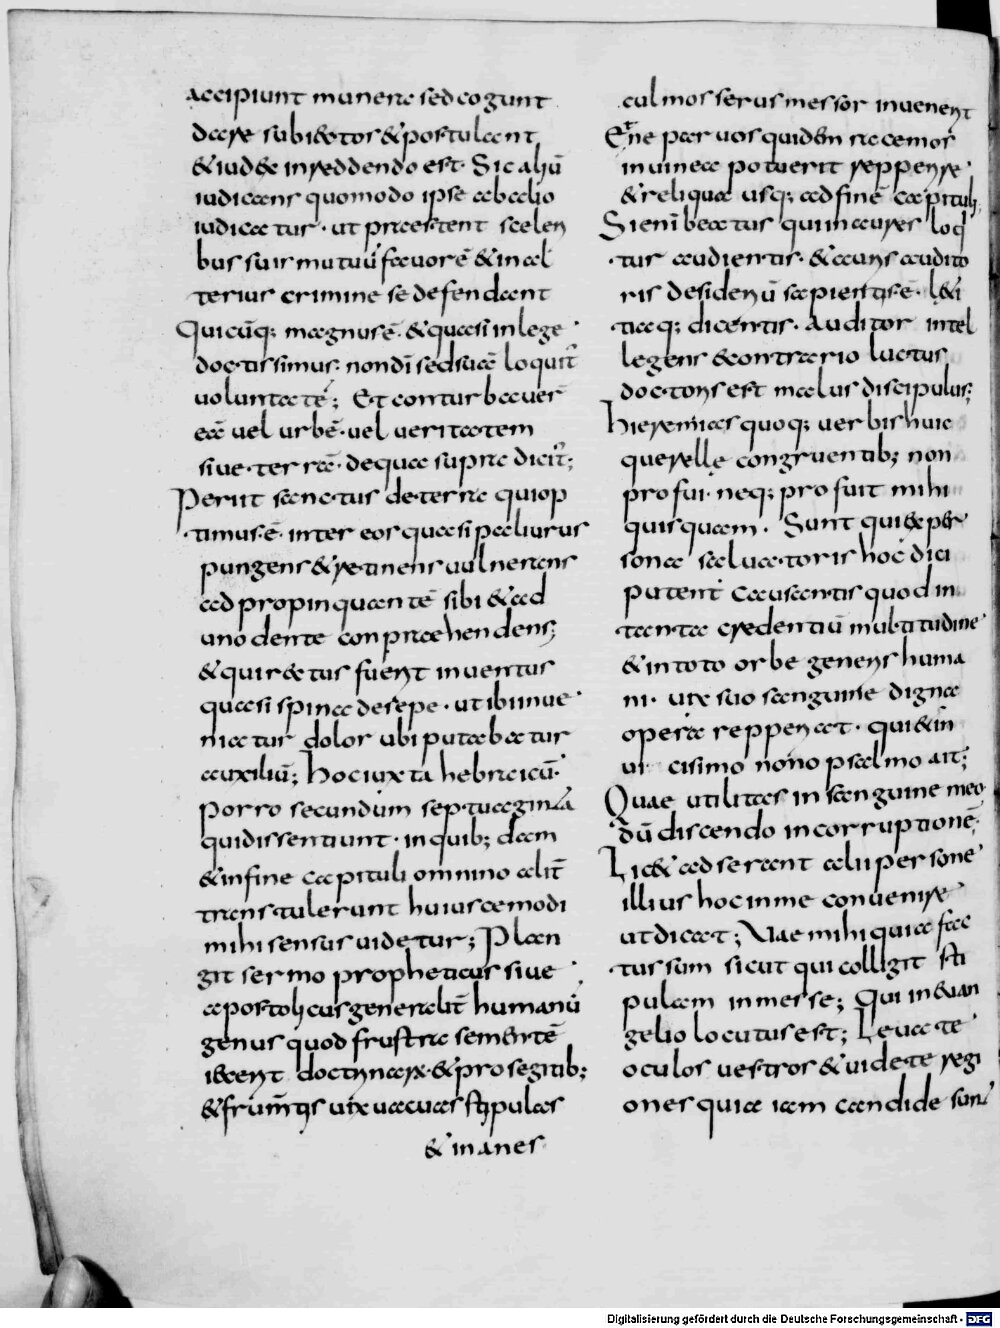 accipiunt munera sed cogunt
dare subiectos & postulant
& iudex in reddendo est. Sic aliū
iudicans quomodo ipse ab alio
iudicatur. ut praestent sceleri
bus suis mutuū fauorē & in al
terius crimine se defendant
Quicūq; magnus ē. & quasi in lege
doctissimus. non dī sed suae loquit̄
voluntatē; Et conturbauer̄
eā uel urbē. uel ueritatem
siue terrā. de qua supra dicit̄;
Periit sanctus de terra qui op
timus ē. inter eos quasi paliurus
pungens & retinens uulnerans
ad propinquantē sibi & ad
uno dente conpraehendens;
& qui rectus fuerit inuentus
quasi spina de sepe. ut ibi inue
niatur dolor ubi putabatur
auxiliū; Hoc iuxta hebraicū.
Porro secundum septuaginta
qui dissentiunt. in quib; dam
& in fine capituli omnino alit̄
transtulerunt huiuscemodi
mihi sensus uidetur; Plan
git sermo propheticus siue
apostolicus generalit̄ humanū
genus quod frustra sementē
iecerit doctrinarū & pro segitib;
& frum̄tis uix uacuas stipulas
& inanes
culmos serus messor inuenerit
& ne paruos quidem racemos
in uinea potuerit repperire
& reliqua usq; ad finē capituli
Si enī beatus qui in aures loq̄
tur audientis. & auris audito
ris desideriū sapientis ē. l&i
tiaq; dicentis. auditor intel
legens & contrario luctus
doctoris est malus discipulus;
Hieremias quoq; uerbis huic
querelle congruentib; non
profui. neq; profuit mihi
quisquam. Sunt qui ex per
sona saluatoris hoc dici
putent Causantis quod in
tanta credentiū multitudine
& in toto orbe generis huma
ni. uix suo sanguine digna
opera repperiat. qui & in
ui cisimo nono psalmo ait;
Quae utilitas in sanguine meo
dū discendo in corruptionē;
Lic& adserant alii persone
illius hoc in me conuenire
ut dicat; Uae mihi quia fac
tus sum sicut qui colligit sti
pulam in messe; Qui in euan
gelio locutus est; Leuate
oculos uestros & uidete regi
ones quia iam candide sunt
Digitalisierung gefördert durch die Deutsche Forschungsgemeinschaft - DFG